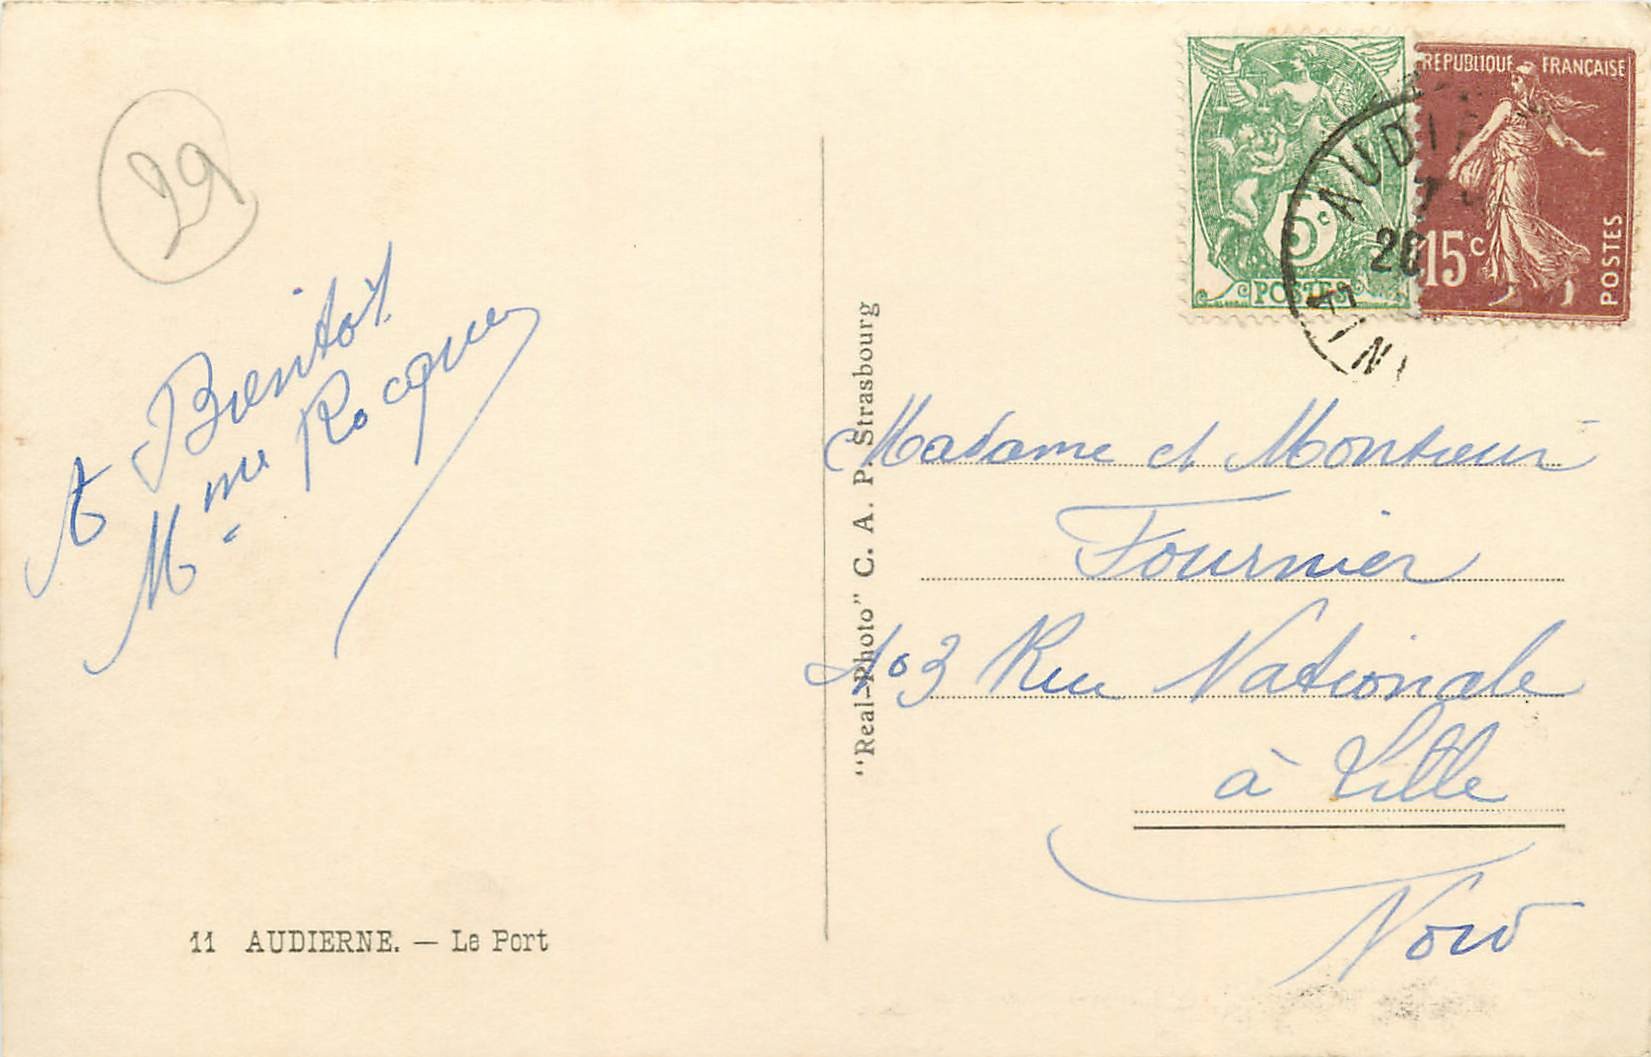 29
A Bientôt
Mme Rocquer
11 AUDIERNE. — Le Port
"Real-Photo" C. A. P. Strasbourg
5c
POSTES
REPUBLIQUE FRANÇAISE
15c
POSTES
AUDI
20
FINI
Madame et Monsieur
Fournier
103 Rue Nationale
à Lille
Nord